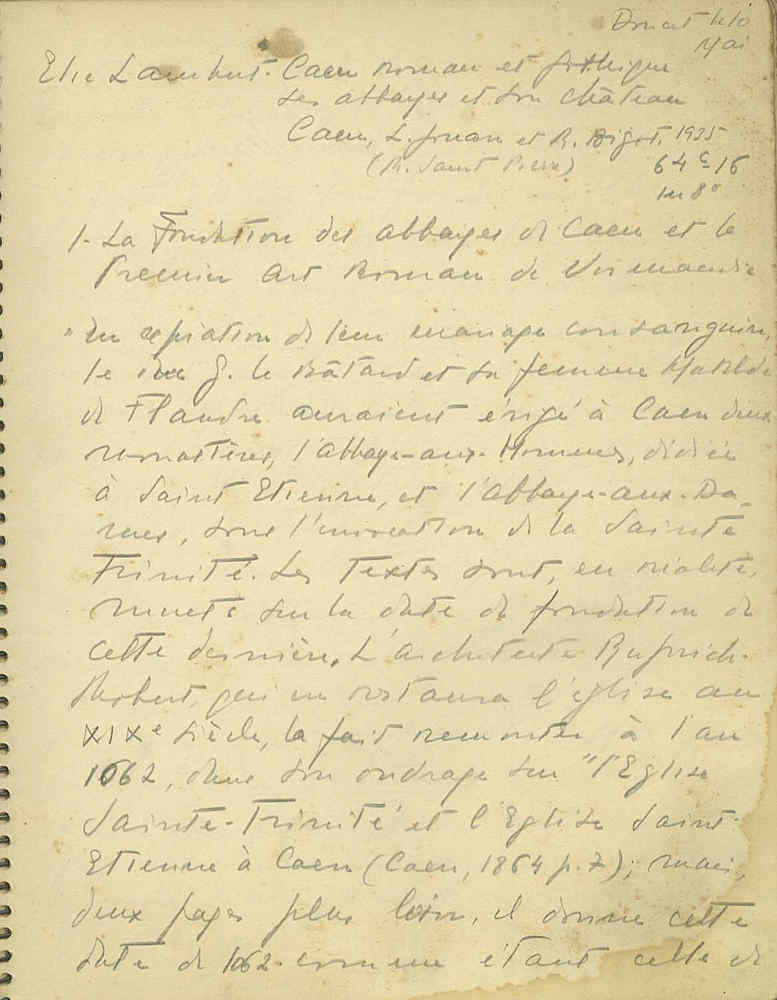 Mai
Elie Lambert. Caen roman et gothique
ses abbayes et son château
Caen, L. Jouan et R. Bigot, 1935
(R. Saint Pierre) 64 c 16
in 8º
1- La Fondation des abbayes de Caen et le
Premier Art Roman de Normandie
"En expiation de leur mariage consanguin,
le duc G. le Bâtard et sa femme Matilde
de Flandre auraient érigé à Caen deux
monastères, l'abbaye-aux-Hommes, dédiée
à Saint Etienne, et l'abbaye-aux-Da-
mes, sous l'invocation de la Sainte
Trinité. Les textes sont, en réalité,
muets sur la date de fondation de
cette dernière. L'architecte Ruprich-
Robert, qui en restaura l'église au
XIXe siècle, la fait remonter à l'an
1062, dans son ouvrage sur "l'Eglise
Sainte-Trinité et l'Eglise Saint-
Etienne à Caen (Caen, 1864 p. 7); mais,
deux pages plus loin, il donne cette
date de 1062 comme étant celle de